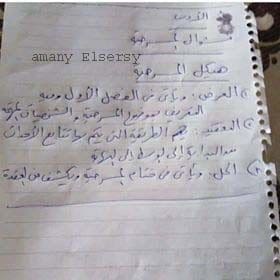 الأدب
سؤال المسرحية
amany Elsersy
هيكل المسرحية
① العرض : ويأتى فى الفصل الأول وفيه
التعريف بموضوع المسرحية والشخصيات
② التعقيد : هو الطريقة التى يتم بها تتابع الأحداث
من البداية إلى الوسط إلى النهاية
③ الحل : ويأتى فى ختام المسرحية ويكشف عن العقدة